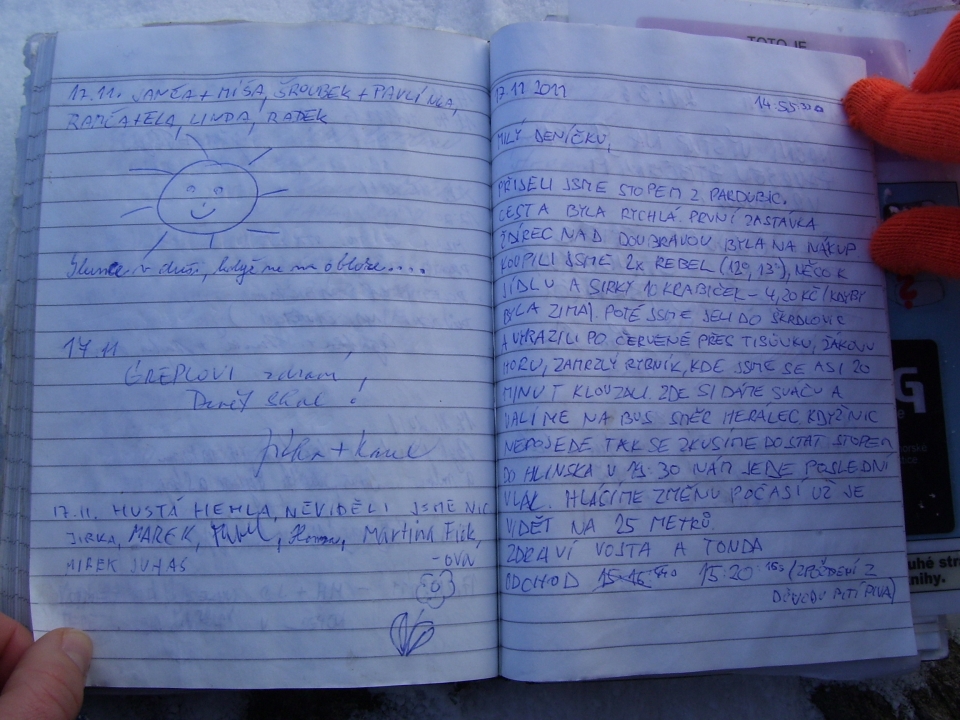 17.11. JANČA + MÍŠA, ŠROUBEK + PAVLÍNKA,
LINDA, RADEK
Slunce v duši, když ne na obloze....
17.11
GREPLOVI zdraví!
17.11. HUSTÁ MLHA, NEVIDĚLI JSME NIC
JIRKA, MAREK, Honza, Martina Fick,
-OVA
MIREK JUHAS
TOTO JE
17.12 2011
14:55:30
MILÝ DENÍČKU,
PŘIJELI JSME STOPEM Z PARDUBIC.
CESTA BYLA RYCHLÁ. PRVNÍ ZASTÁVKA
ŽDÍREC NAD DOUBRAVOU BYLA NA NÁKUP
KOUPILI JSME 2x REBEL (12°, 13°), NĚCO K
JÍDLU A SIRKY 10 KRABIČEK - 4,20 KČ (KDYBY
BYLA ZIMA). POTÉ JSME JELI DO ŠKRDLOVIC
A VYRAZILI PO ČERVENÉ PŘES TISŮVKU, ŽÁKOVU
HORU, ZAMRZLÝ RYBNÍK, KDE JSME SE ASI 20
MINUT KLOUZALI. ZDE SI DÁME SVAČU A
VALÍME NA BUS SMĚR HERÁLEC KDYŽ NIC
NEPOJEDE TAK SE ZKUSÍME DOSTAT STOPEM
DO HLINSKA V 19:30 NÁM JEDE POSLEDNÍ
VLAK. HLÁSÍME ZMĚNU POČASÍ UŽ JE
VIDĚT NA 25 METRŮ.
ZDRAVÍ VOJTA A TONDA
ODCHOD 15:20 (ZPOŽDĚNÍ Z
DŮVODU PITÍ PIVA)
G
uhé str
knihy.